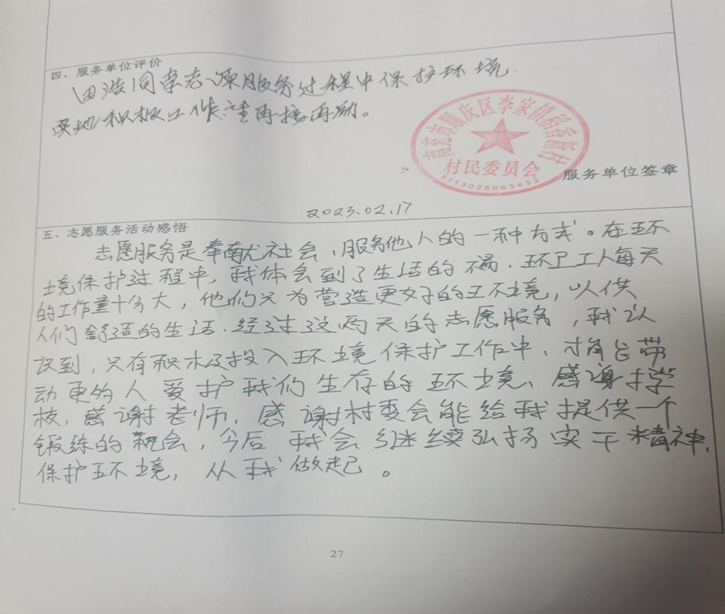 四、服务单位评价
田浩同学志源服务过程中保护环境
实地积极工作请再接再励。
村民委员会
服务单位签章
2023.02.17
五、志愿服务活动感悟
志愿服务是奉献社会,服务他人的一种方式。在环
境保护过程中,我体会到了生活的不易,环卫工人每天
的工作量十分大,他们只为营造更好的环境,以供
人们舒适的生活.经过这两天的志愿服务,我认
识到,只有积极投入环境保护工作中,才能带
动更多人爱护我们生存的环境、感谢学
校,感谢老师,感谢村委会能给我提供一个
锻练的机会,今后我会继续弘扬实干精神,
保护环境,从我做起。
27